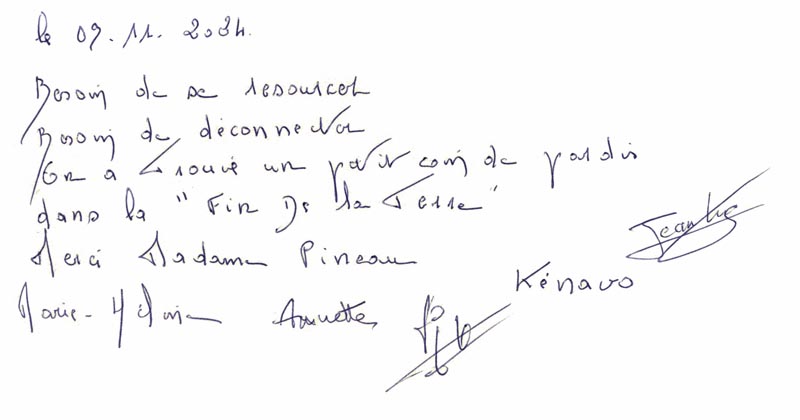 le 09.11.2024.
Besoin de se resourcer
Besoin de déconnecter
On a trouvé un petit coin de paradis
dans la "Fin De la Terre"
Merci Madame Pineau
Kénavo
Marie- Annette